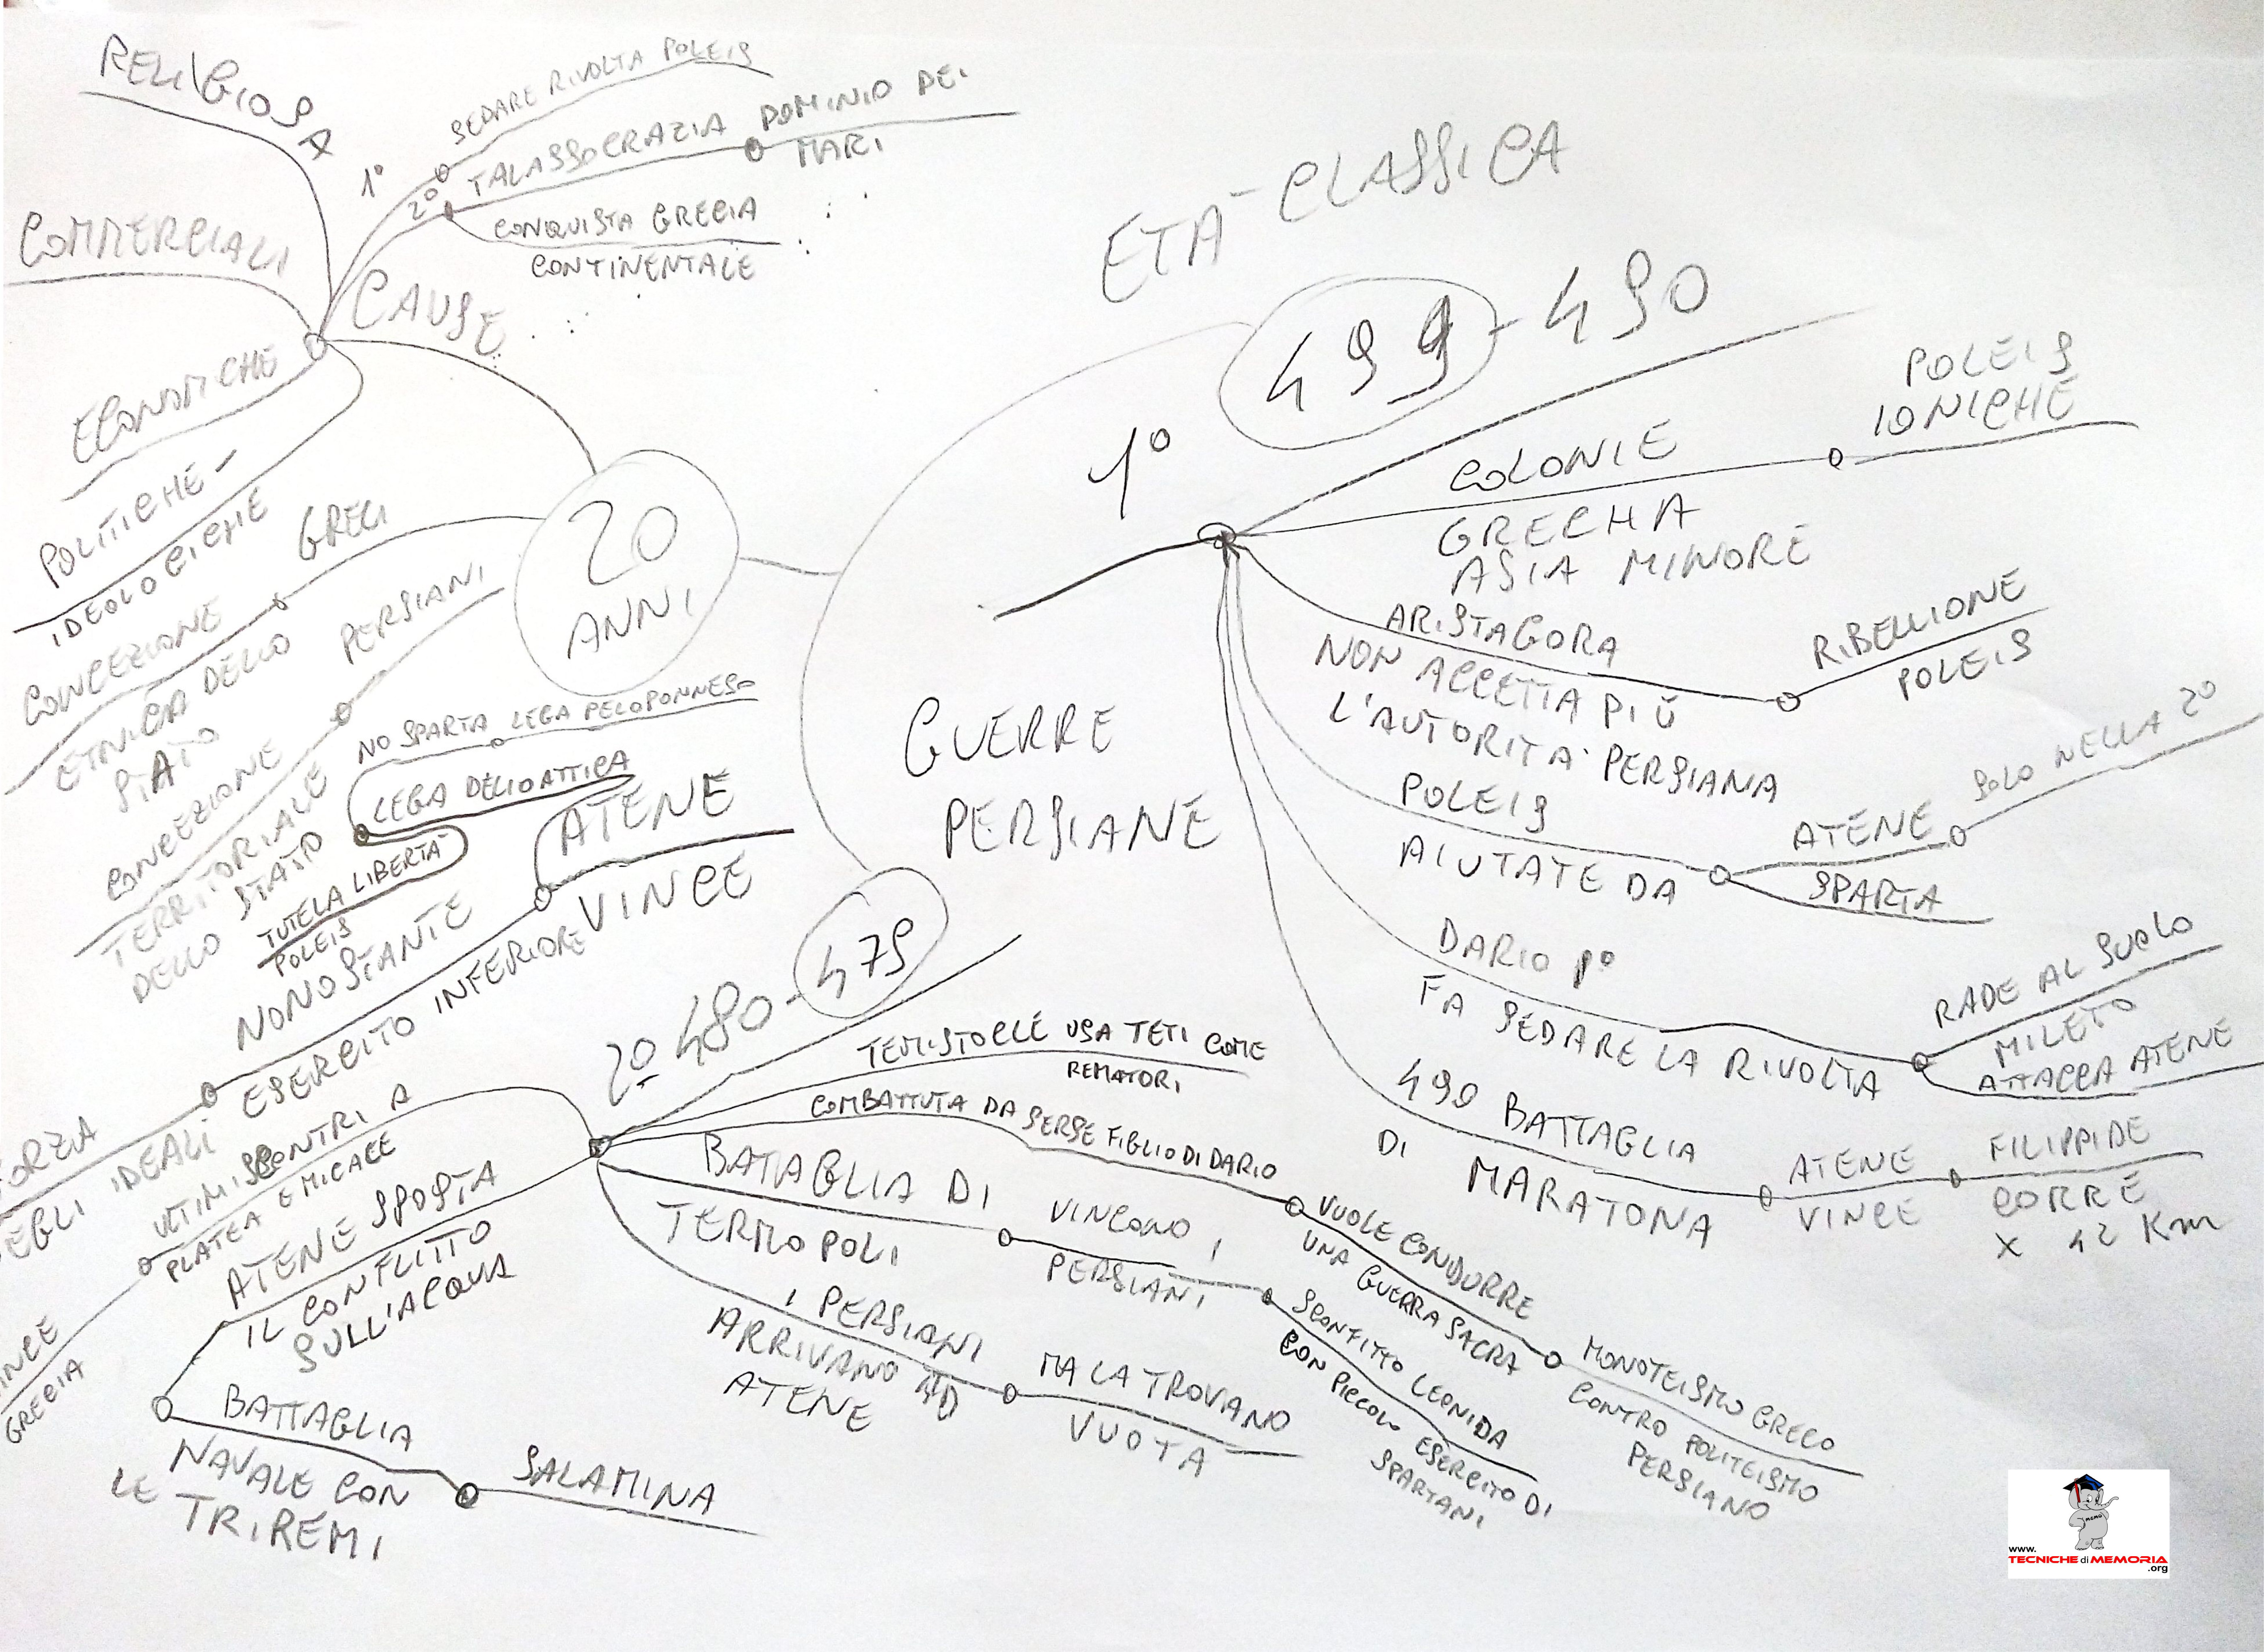 ETÀ CLASSICA
GUERRE
PERSIANE
1°
499 - 490
COLONIE
GRECHIA
ASIA MINORE
POLEIS
IONICHE
ARISTAGORA
NON ACCETTA PIÙ
L'AUTORITÀ PERSIANA
RIBELLIONE
POLEIS
POLEIS
AIUTATE DA
ATENE
SOLO NELLA 2°
SPARTA
DARIO 1°
FA SEDARE LA RIVOLTA
RADE AL SUOLO
MILETO
ATTACCA ATENE
490 BATTAGLIA
DI MARATONA
ATENE
VINCE
FILIPPIDE
CORRE
X 42 Km
2° 480 - 479
TEMISTOCLE USA TETI COME
REMATORI
COMBATTUTA DA SERSE FIGLIO DI DARIO
VUOLE CONDURRE
UNA GUERRA SACRA
MONOTEISMO GRECO
CONTRO POLITEISMO
PERSIANO
BATAGLIA DI
TERMOPOLI
VINCONO I
PERSIANI
SCONFITTO LEONIDA
CON PICCOLO ESERCITO DI
SPARTANI
I PERSIANI
ARRIVANO AD
ATENE
MA LA TROVANO
VUOTA
ATENE SPOSTA
IL CONFLITTO
SULL'ACQUA
BATTAGLIA
NAVALE CON
LE TRIREMI
SALAMINA
ULTIMI SCONTRI A
PLATEA E MICALE
GRECIA
20
ANNI
CAUSE
RELIGIOSA
COMMERCIALI
ECONOMICHE
POLITICHE -
IDEOLOGICHE
1°
SEDARE RIVOLTA POLEIS
2°
TALASSOCRAZIA
DOMINIO DEI
MARI
CONQUISTA GRECIA
CONTINENTALE
GRECI
CONCEZIONE
ETNICA DELLO
STATO
PERSIANI
CONCEZIONE
TERRITORIALE
DELLO STATO
ATENE
VINCE
NO SPARTA LEGA PELOPONNESO
LEGA DELIO ATTICA
TUTELA LIBERTÀ
POLEIS
NONOSTANTE
ESERCITO INFERIORE
IDEALI
www.
TECNICHE di MEMORIA
.org